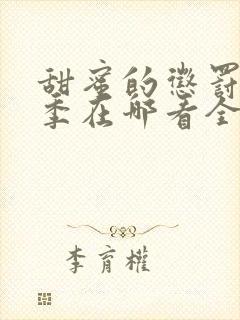 甜蜜的惩罚
季在哪看全
李育权